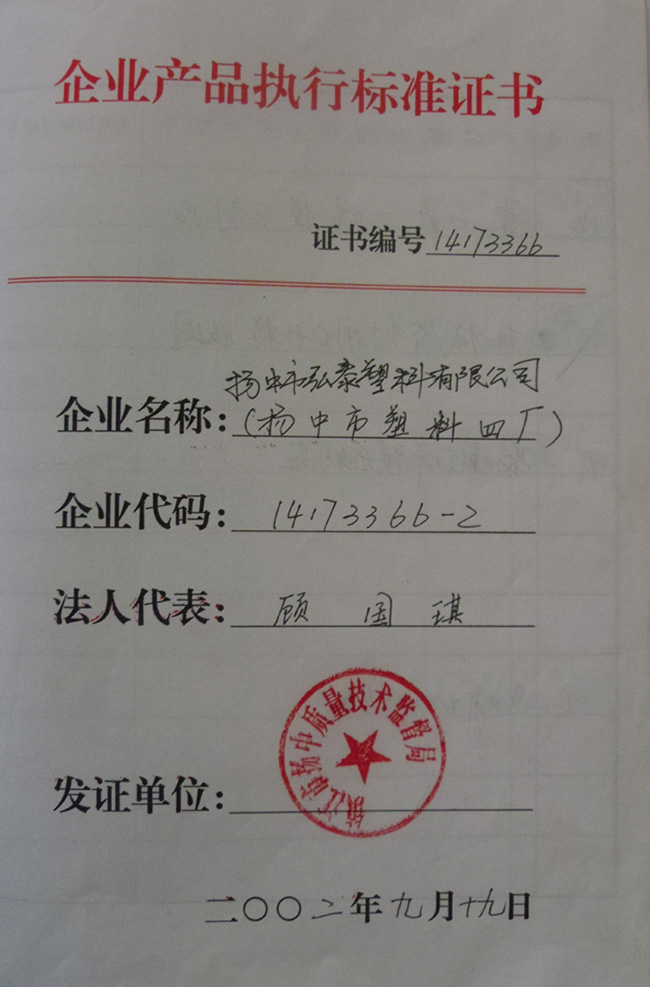 企业产品执行标准证书
证书编号 14173366
扬中市泓泰塑料有限公司
企业名称:(扬中市塑料四厂)
企业代码: 14173366-2
法人代表: 顾国琪
镇江市扬中质量技术监督局
发证单位:
二〇〇二年九月十九日